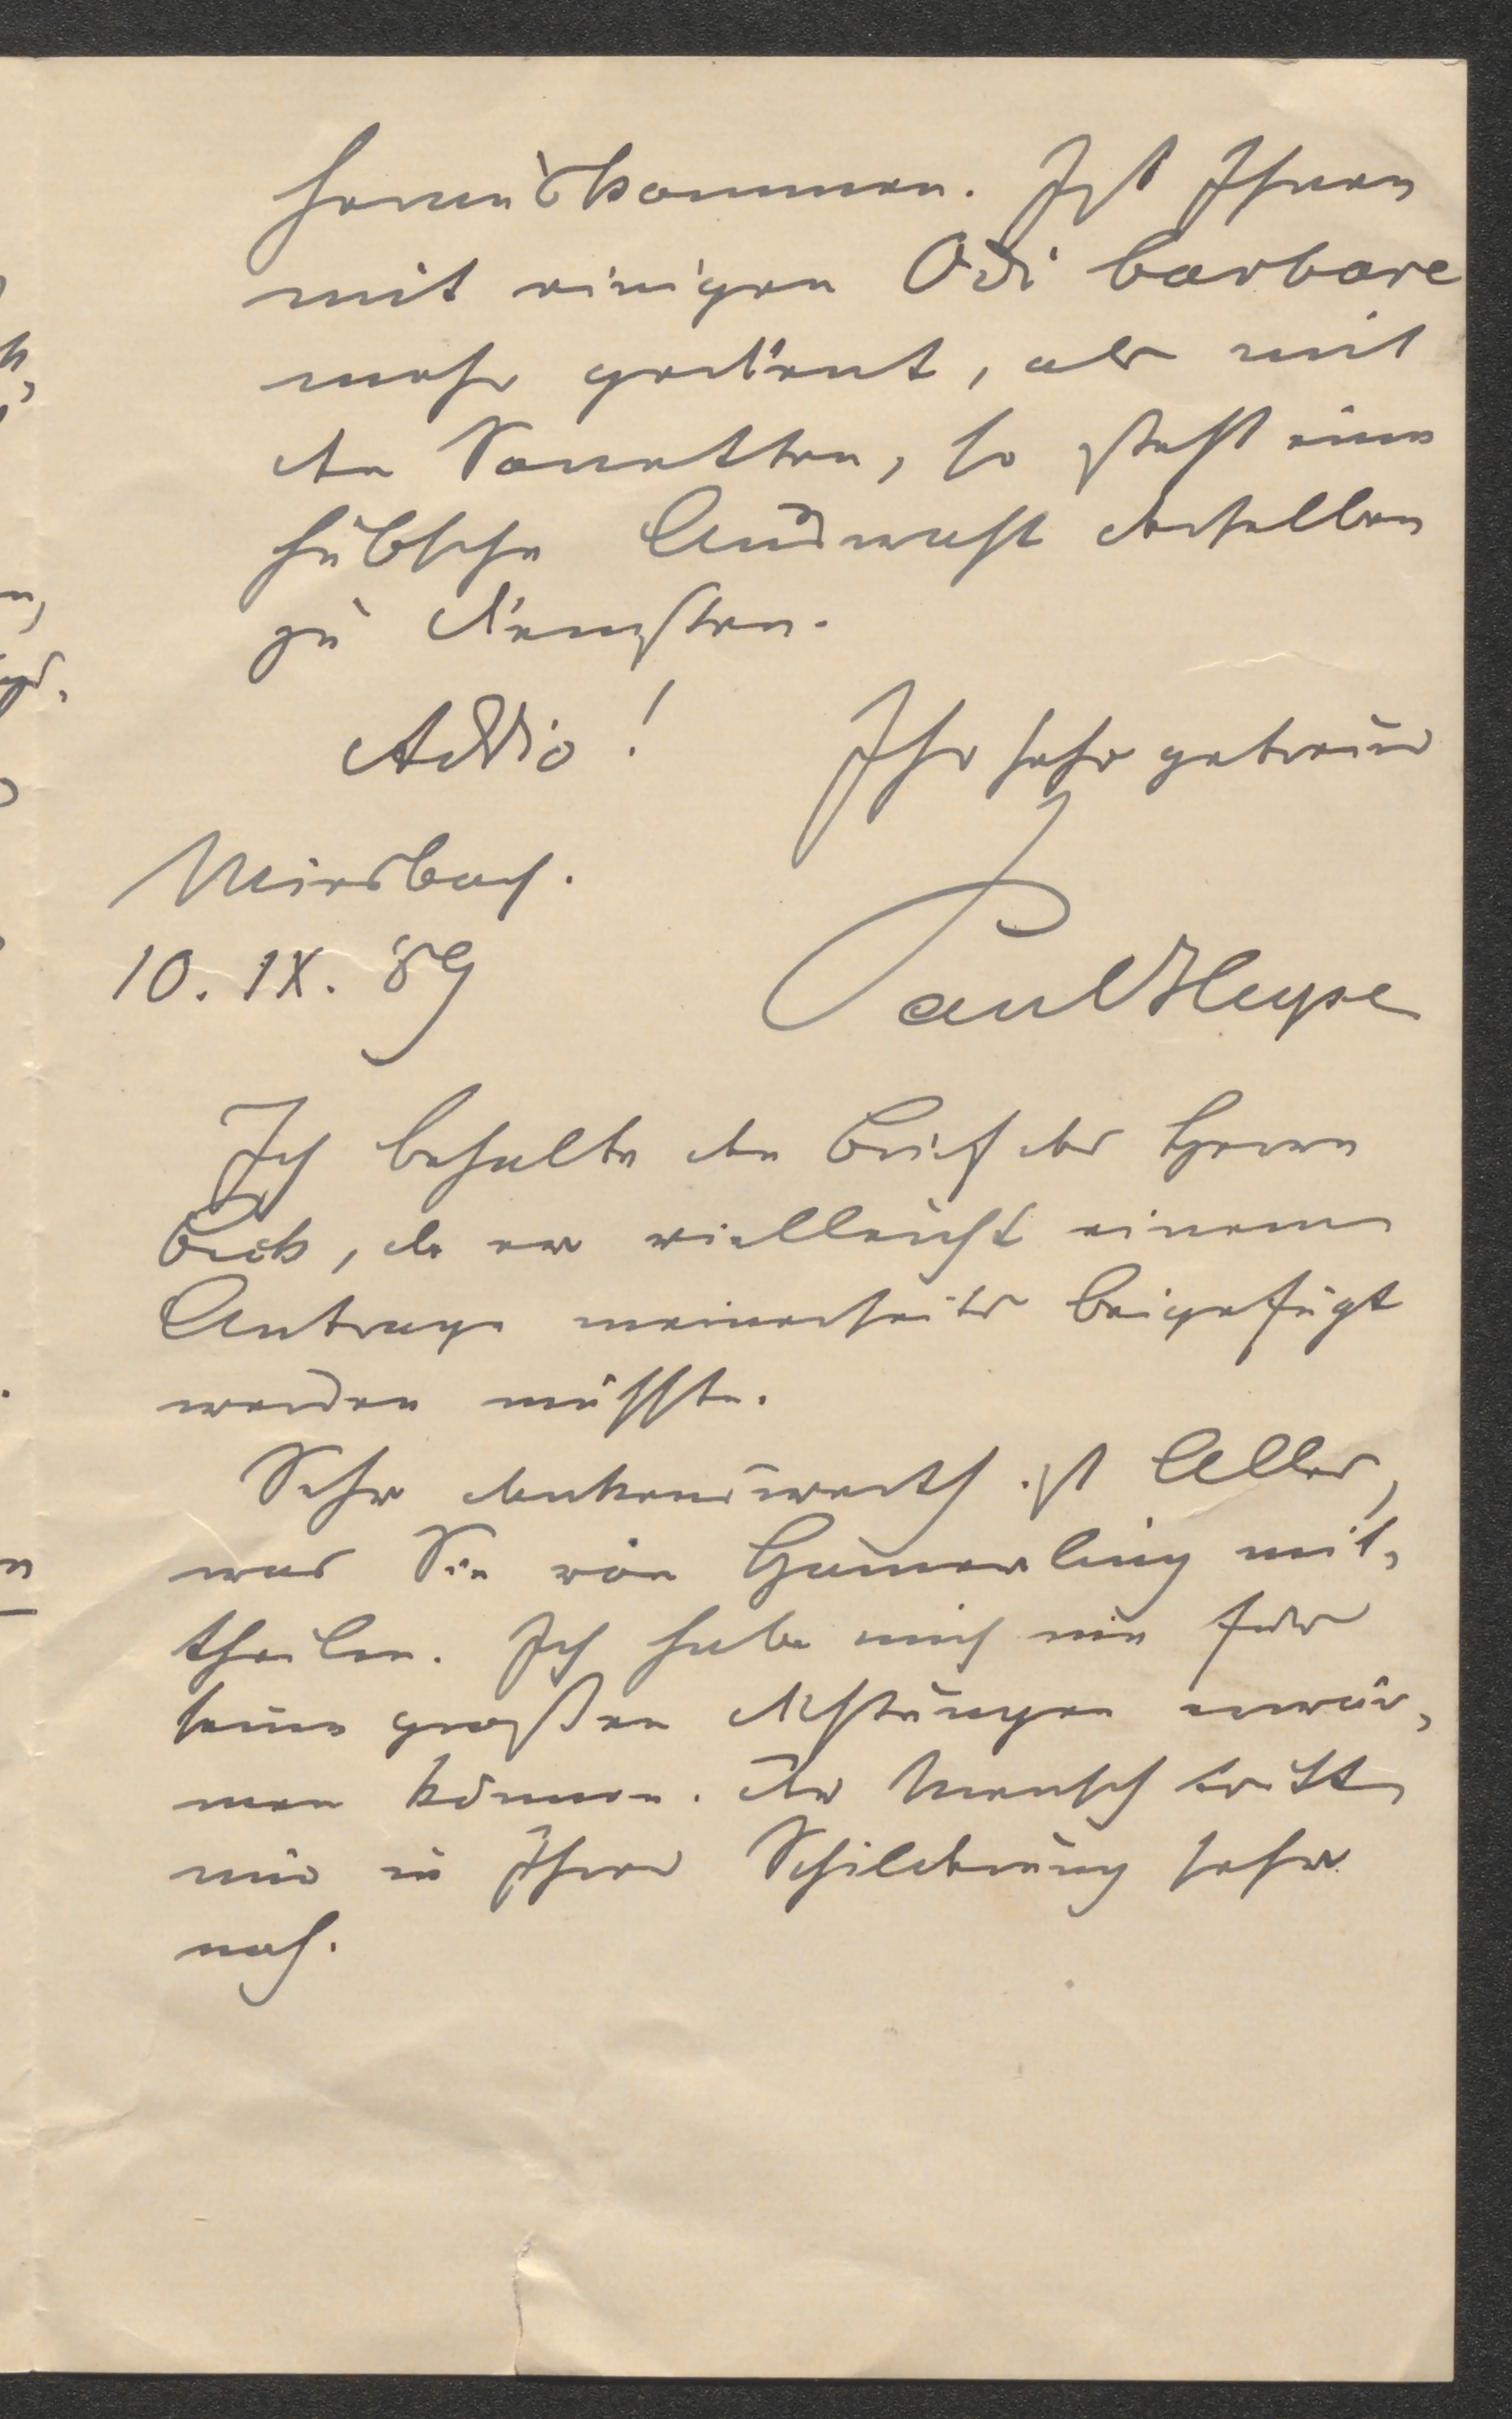 herauskommen. Ist Ihnen
mit einigen Odi barbare
mehr gedient, als mit
den Sonetten, so steht eine
hübsche Auswahl derselben
zu Diensten.
Addio! Ihr sehr getreuer
Miesbach.
10. IX. 89
Paul Heyse
Ich behalte den Brief des Herrn
Beck, da er vielleicht einem
Antrage meinerseits beigefügt
werden müsste.
Sehr dankenswerth ist Alles,
was Sie von Hamerling mit-
theilen. Ich habe mich nie für
seine großen Dichtungen erwär-
men können. Der Mensch tritt
mir in Ihrer Schilderung sehr
nah.